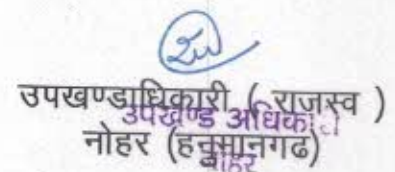 उपखण्डाधिकारी ( राजस्व )
उपखण्ड अधिका
नोहर (हनुमानगढ)
नोहर